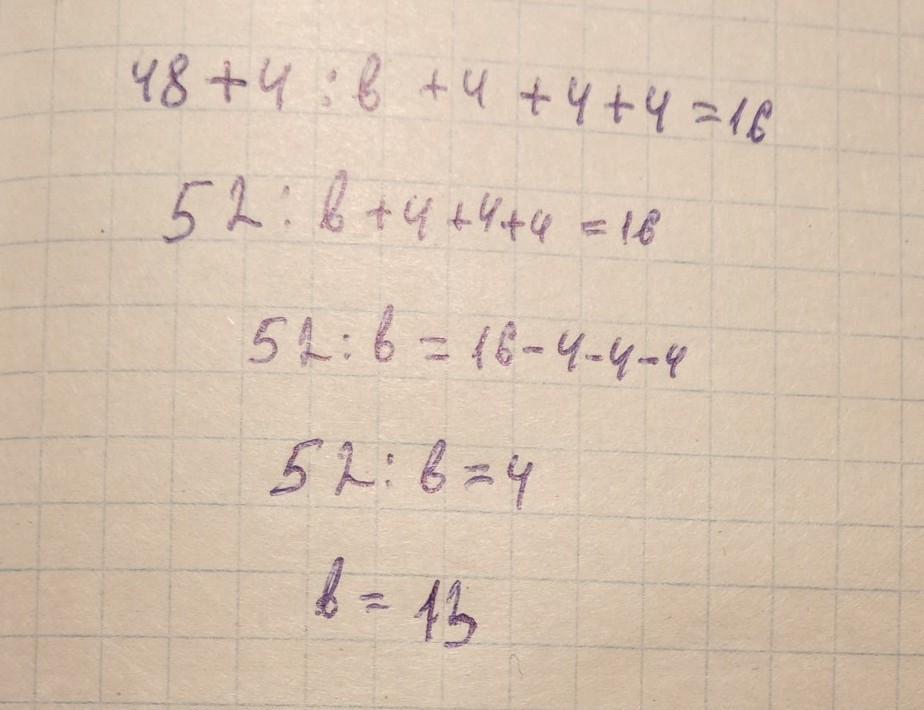 48 + 4 : b + 4 + 4 + 4 = 16
52 : b + 4 + 4 + 4 = 16
52 : b = 16 - 4 - 4 - 4
52 : b = 4
b = 13